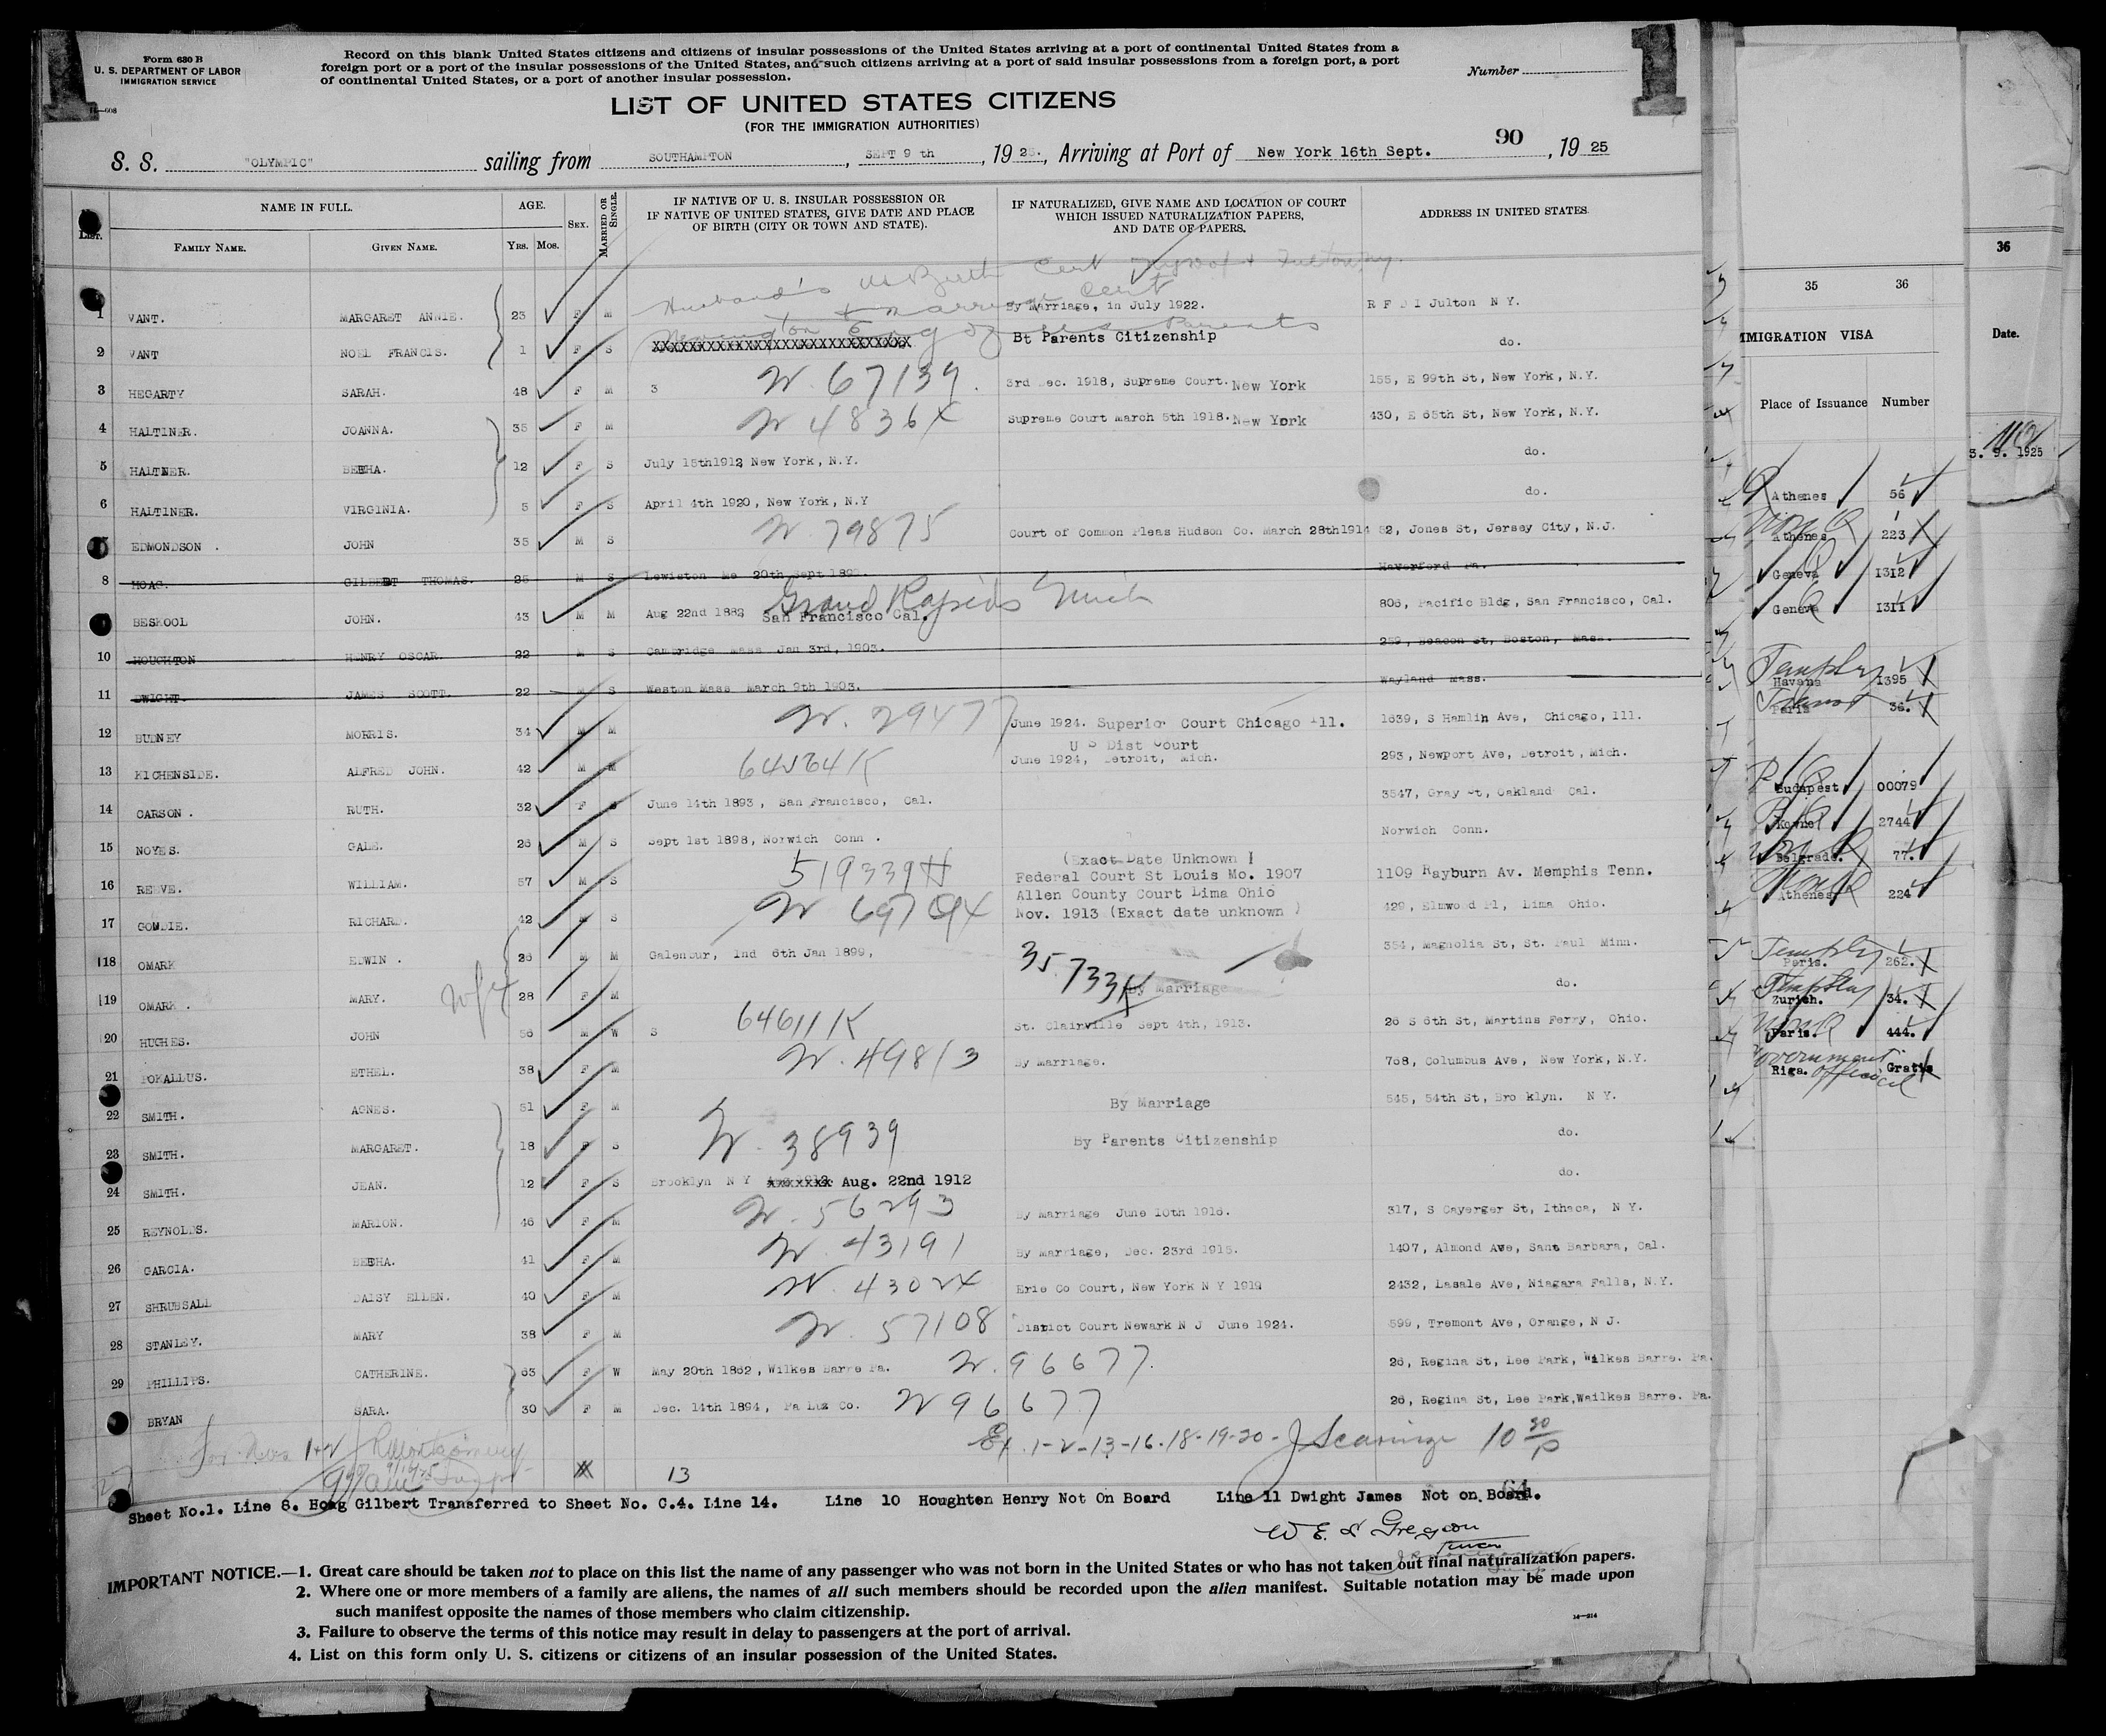 Form 630 B
U. S. DEPARTMENT OF LABOR
IMMIGRATION SERVICE
1
1
Record on this blank United States citizens and citizens of insular possessions of the United States arriving at a port of continental United States from a
foreign port or a port of the insular possessions of the United States, and such citizens arriving at a port of said insular possessions from a foreign port, a port
of continental United States, or a port of another insular possession.
Number
LIST OF UNITED STATES CITIZENS
(FOR THE IMMIGRATION AUTHORITIES)
90
S. S. "OLYMPIC" sailing from SOUTHAMPTON, SEPT 9 th, 1925., Arriving at Port of New York 16th Sept., 1925
NAME IN FULL. AGE. SEX. MARRIED OR SINGLE. IF NATIVE OF U. S. INSULAR POSSESSION OR IF NATIVE OF UNITED STATES, GIVE DATE AND PLACE OF BIRTH (CITY OR TOWN AND STATE). IF NATURALIZED, GIVE NAME AND LOCATION OF COURT WHICH ISSUED NATURALIZATION PAPERS, AND DATE OF PAPERS. ADDRESS IN UNITED STATES.
LIST. FAMILY NAME. GIVEN NAME. YRS. MOS.
Husband's US Birth Cert
+ Marriage Cert
1 VANT. MARGARET ANNIE. 23 F M By Marriage, in July 1922. R F D I Julton N Y.
Parents
2 VANT NOEL FRANCIS. 1 F S XXXXXXXXXXXXXXXXXXXXXXXXXXXX Bt Parents Citizenship do.
3 HEGARTY SARAH. 48 F M 3 W. 67139. 3rd Dec. 1918, Supreme Court. New York 155, E 99th St, New York, N.Y.
4 HALTINER. JOANNA. 35 F M W 4836X Supreme Court March 5th 1918. New York 430, E 65th St, New York, N.Y.
5 HALTNER. BERHA. 12 F S July 15th1912, New York, N.Y. do.
6 HALTINER. VIRGINIA. 5 F S April 4th 1920, New York, N.Y do.
EDMONDSON . JOHN 35 M S W. 79875 Court of Common Pleas Hudson Co. March 28th1914 52, Jones St, Jersey City, N.J.
8 HOAG. GILBERT THOMAS. 25 M S Lewiston Me 20th Sept 189 Haverford Pa.
Grand Rapids Mich
BESKOOL JOHN. 43 M M Aug 22nd 1882 San Francisco Cal. 806, Pacific Bldg, San Francisco, Cal.
10 HOUGHTON HENRY OSCAR. 22 M S Cambridge Mass Jan 3rd, 1903. 259, Beacon St, Boston, Mass.
11 DWIGHT. JAMES SCOTT. 22 M S Weston Mass March 9th 1903. Wayland Mass.
12 BUDNEY MORRIS. 34 M M W. 29477 June 1924. Superior Court Chicago Ill. 1639, S Hamlin Ave, Chicago, Ill.
U S Dist Court
13 KICHENSIDE. ALFRED JOHN. 42 M M June 1924, Detroit, Mich. 293, Newport Ave, Detroit, Mich.
14 CARSON . RUTH. 32 F S June 14th 1893, San Francisco, Cal. 3547, Gray St, Oakland Cal.
15 NOYES. GALE. 26 M S Sept 1st 1898, Norwich Conn . Norwich Conn.
(Exact Date Unknown )
16 REEVE. WILLIAM. 57 M S 519339H Federal Court St Louis Mo. 1907 1109 Rayburn Av. Memphis Tenn.
Allen County Court Lima Ohio
17 GOWDIE. RICHARD. 42 M S Nov. 1913 (Exact date unknown ) 429, Elmwood Pl, Lima Ohio.
18 OMARK EDWIN . 26 M M Galenbur, Ind 6th Jan 1899, 354, Magnolia St, St. Paul Minn.
35.733K
19 OMARK . MARY. 28 F M By Marriage do.
20 HUGHES. JOHN 56 M W S 64611K St. Clairville Sept 4th, 1913. 26 S 6th St, Martins Ferry, Ohio.
21 POKALLUS. ETHEL. 38 F M W. 49813 By Marriage. 768, Columbus Ave, New York, N.Y.
22 SMITH. AGNES. 51 F M By Marriage 545, 54th St, Brooklyn. N Y.
23 SMITH. MARGARET. 18 F S W. 38939 By Parents Citizenship do.
24 SMITH. JEAN. 12 F S Brooklyn N Y Aug. 22nd 1912 do.
25 REYNOLDS. MARION. 46 F M W. 56293 By Marriage June 10th 1916. 317, S Cayerger St, Ithaca, N Y.
26 GARCIA. BERHA. 41 F M W. 43191 By Marriage, Dec. 23rd 1915. 1407, Almond Ave, Sant Barbara, Cal.
27 SHRUBSALL DAISY ELLEN. 40 F M W. 4302X Erie Co Court, New York N Y 1919 2432, Lasale Ave, Niagara Falls, N.Y.
28 STANLEY. MARY 38 F M W. 57108 District Court Newark N J June 1924. 599, Tremont Ave, Orange, N J.
29 PHILLIPS. CATHERINE. 63 F W May 20th 1862, Wilkes Barre Pa. W. 96677. 26, Regina St, Lee Park, Wilkes Barre. Pa.
BRYAN SARA. 30 F M Dec. 14th 1894, Pa Luz Co. W 96677 26, Regina St, Lee Park, Wailkes Barre. Pa.
For Nos 1+2 RMontgomery
Ex. 1-2-13-16-18-19-20- 10 30/P
13
64.
Sheet No.1. Line 8. Hoag Gilbert Transferred to Sheet No. C.4. Line 14. Line 10 Houghten Henry Not On Board Line 11 Dwight James Not on Board.
IMPORTANT NOTICE.—1. Great care should be taken not to place on this list the name of any passenger who was not born in the United States or who has not taken out final naturalization papers.
2. Where one or more members of a family are aliens, the names of all such members should be recorded upon the alien manifest. Suitable notation may be made upon
such manifest opposite the names of those members who claim citizenship.
3. Failure to observe the terms of this notice may result in delay to passengers at the port of arrival.
4. List on this form only U. S. citizens or citizens of an insular possession of the United States.
14—214
35 36
MMIGRATION VISA
Place of Issuance Number
Athenes 56
Athenes 223
Geneva 1312
Geneva 1311
Havana 1395
Paris 36.
Budapest 00079
Kowno 2744
Belgrade. 77.
Athenes 224
Paris. 262.
Zurich. 34.
Paris. 444.
Government Official
Riga. Gratis
36
Date.
3. 9. 1925